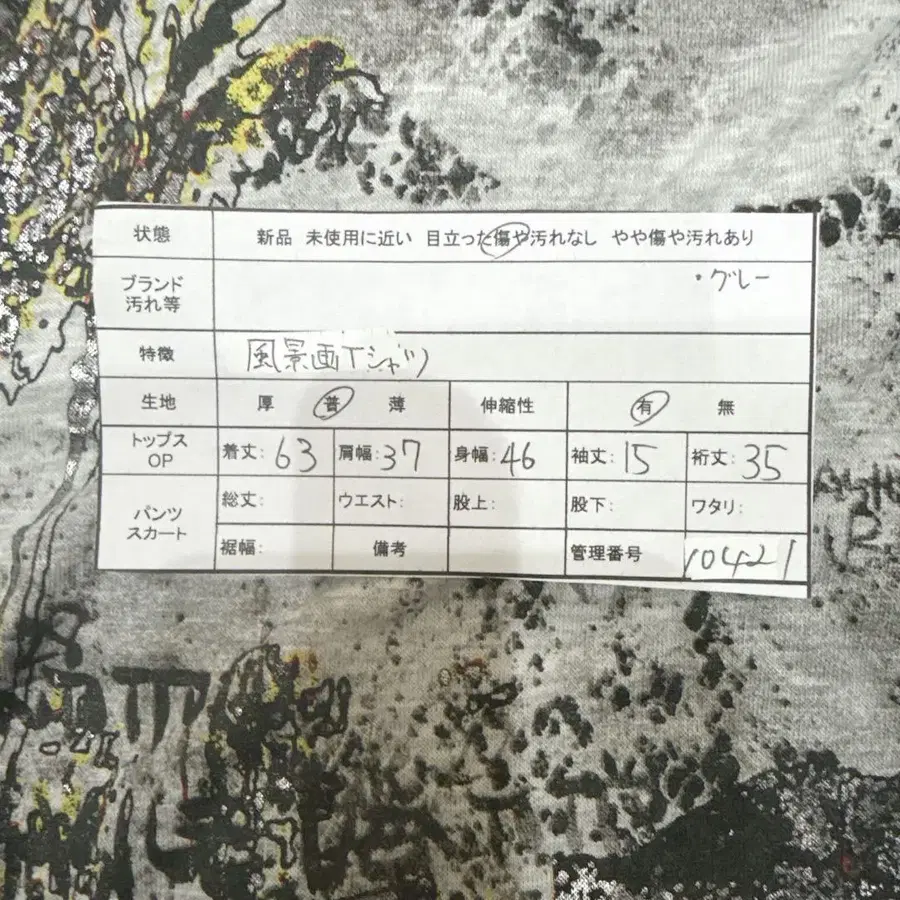 状態 新品 未使用に近い 目立った傷や汚れなし やや傷や汚れあり
ブランド ・グレー
汚れ等
特徴 風景画Tシャツ
生地 厚 普 薄 伸縮性 有 無
トップス
OP 着丈: 63 肩幅: 37 身幅: 46 袖丈: 15 裄丈: 35
パンツ
スカート
総丈: ウエスト: 股上: 股下: ワタリ:
裾幅: 備考 管理番号 10421